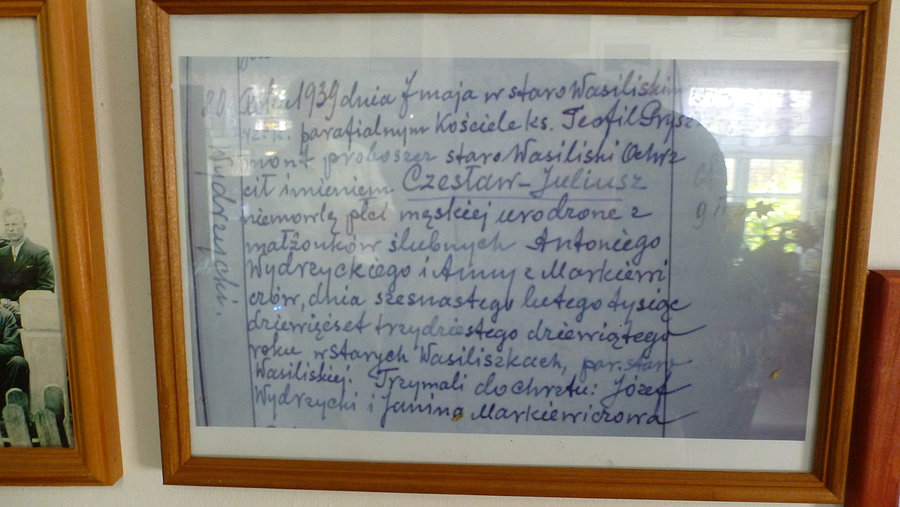 20. Roku 1939 dnia 7 maja w staro Wasiliskim
rz.-k. parafialnym Kościele ks. Teofil Prysz
mont proboszcz staro Wasiliski Ochrz
cił imieniem Czesław-Juliusz
niemowlę płci męskiej urodzone z
małżonków ślubnych Antoniego
Wydrzyckiego i Anny z Markiewi
czów, dnia szesnastego lutego tysiąc
dziewięćset trzydziestego dziewiątego
roku w Starych Wasiliszkach, par. staro
Wasiliskiej. Trzymali do chrztu: Józef
Wydrzycki i Janina Markiewiczowa
Wydrzycki.